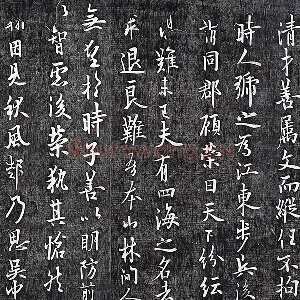 清才善屬文而縱任不拘
時人號之為江東步兵後
謂同郡顧榮曰天下紛紜
禍難未已夫有四海之名者
求退良難吾本山林間人
無望於時子善以明防前
以智慮後榮執其愴然
翰因見秋風起乃思吳中